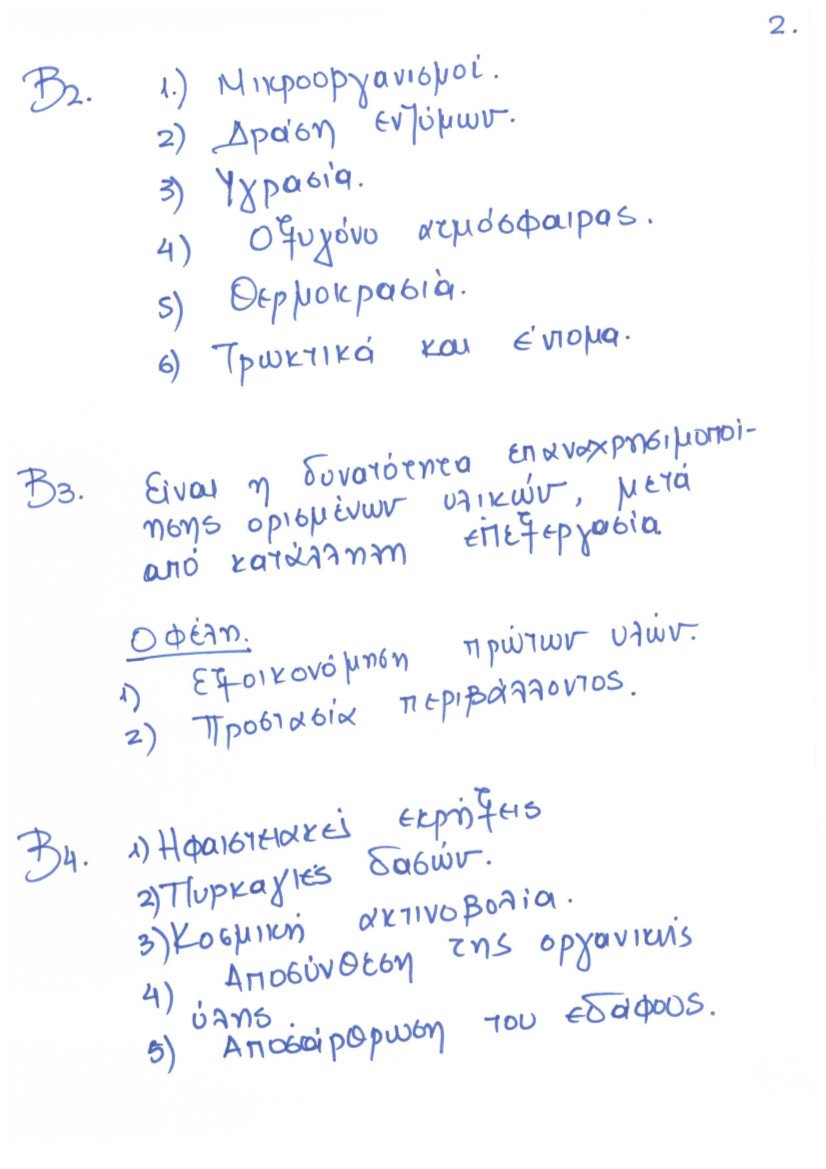 2.
Β2. 1.) Μικροοργανισμοί.
2) Δράση εντόμων.
3) Υγρασία.
4) Οξυγόνο ατμόσφαιρας.
5) Θερμοκρασία.
6) Τρωκτικά και έντομα.
Β3. Είναι η δυνατότητα επαναχρησιμοποί-
ησης ορισμένων υλικών, μετά
από κατάλληλη επεξεργασία
Οφέλη.
1) Εξοικονόμηση πρώτων υλών.
2) Προστασία περιβάλλοντος.
Β4. 1) Ηφαιστειακεί εκρήξεις
2) Πυρκαγιές δασών.
3) Κοσμική ακτινοβολία.
4) Αποσύνθεση της οργανικής
ύλης
5) του εδάφους.